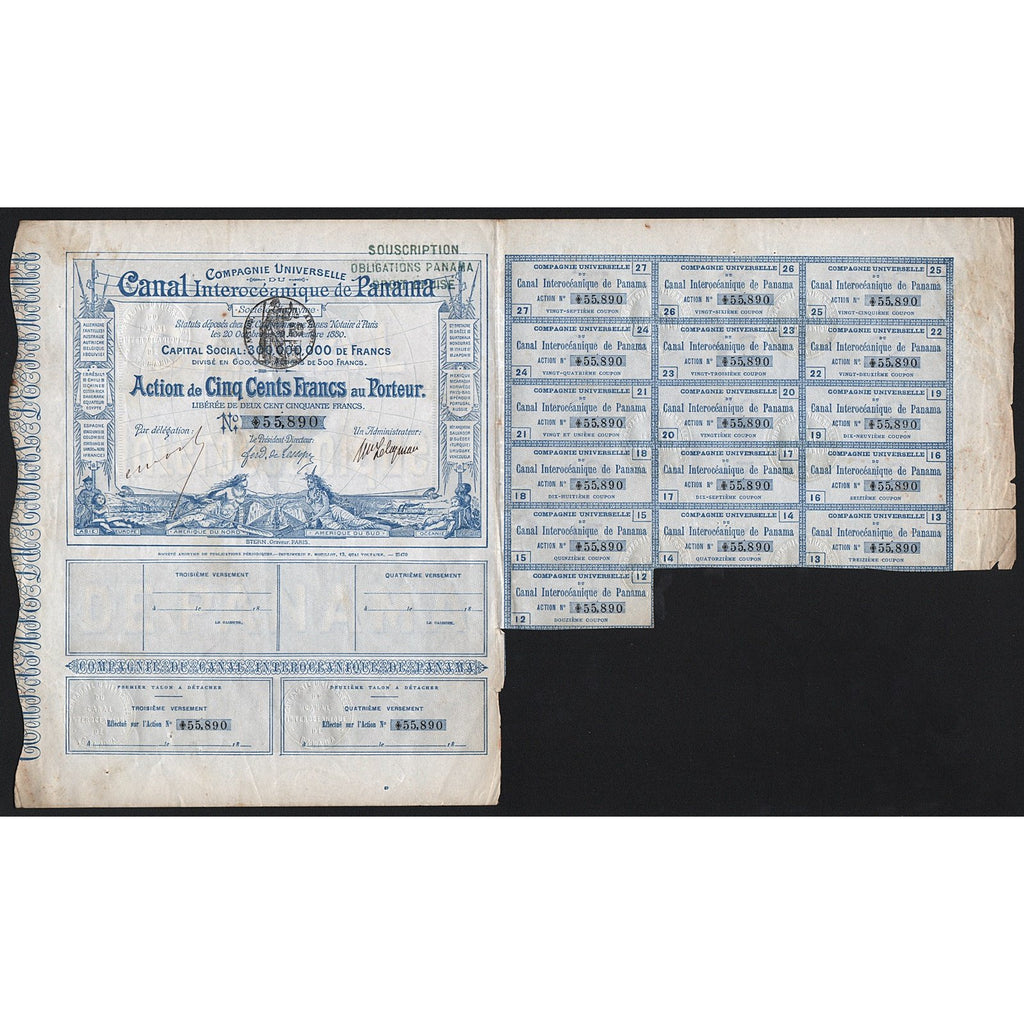 SOUSCRIPTION
OBLIGATIONS PANAMA
COMPAGNIE UNIVERSELLE
DU
Canal Interocéanique de Panama
Société Anonyme
Statuts déposés chez Notaire à Paris
les 20 1880.
CAPITAL SOCIAL: 300,000,000 DE FRANCS
DIVISÉ EN 600,000 DE 500 FRANCS.
Action de Cinq Cents Francs au Porteur.
LIBÉRÉE DE DEUX CENT CINQUANTE FRANCS.
No. 55,890
Par délégation:
Le Président-Directeur:
Un Administrateur:
Ferd. de Lesseps
ASIE EUROPE AMÉRIQUE DU NORD AMÉRIQUE DU SUD OCÉANIE
STERN, Graveur, PARIS.
SOCIÉTÉ ANONYME DE PUBLICATIONS PÉRIODIQUES.— IMPRIMERIE P. MOUILLOT, 13, QUAI VOLTAIRE. —
TROISIÈME VERSEMENT
à le 18
LE CAISSIER,
QUATRIÈME VERSEMENT
à le 18
LE CAISSIER,
COMPAGNIE DU CANAL INTEROCÉANIQUE DE PANAMA
PREMIER TALON A DÉTACHER
TROISIÈME VERSEMENT
Effectué sur l'Action No 55,890
à le 18
DEUXIÈME TALON A DÉTACHER
QUATRIÈME VERSEMENT
Effectué sur l'Action No 55,890
à le 18
COMPAGNIE UNIVERSELLE 27
DU
Canal Interocéanique de Panama
ACTION No 55,890
27 VINGT-SEPTIÈME COUPON
COMPAGNIE UNIVERSELLE 26
DU
Canal Interocéanique de Panama
ACTION No 55,890
26 VINGT-SIXIÈME COUPON
COMPAGNIE UNIVERSELLE 25
DU
Canal Interocéanique de Panama
ACTION No 55,890
25 VINGT-CINQUIÈME COUPON
COMPAGNIE UNIVERSELLE 24
DU
Canal Interocéanique de Panama
ACTION No 55,890
24 VINGT-QUATRIÈME COUPON
COMPAGNIE UNIVERSELLE 23
DU
Canal Interocéanique de Panama
ACTION No 55,890
23 VINGT-TROISIÈME COUPON
COMPAGNIE UNIVERSELLE 22
DU
Canal Interocéanique de Panama
ACTION No 55,890
22 VINGT-DEUXIÈME COUPON
COMPAGNIE UNIVERSELLE 21
DU
Canal Interocéanique de Panama
ACTION No 55,890
21 VINGT ET UNIÈME COUPON
COMPAGNIE UNIVERSELLE 20
DU
Canal Interocéanique de Panama
ACTION No 55,890
20 VINGTIÈME COUPON
COMPAGNIE UNIVERSELLE 19
DU
Canal Interocéanique de Panama
ACTION No 55,890
19 DIX-NEUVIÈME COUPON
COMPAGNIE UNIVERSELLE 18
DU
Canal Interocéanique de Panama
ACTION No 55,890
18 DIX-HUITIÈME COUPON
COMPAGNIE UNIVERSELLE 17
DU
Canal Interocéanique de Panama
ACTION No 55,890
17 DIX-SEPTIÈME COUPON
COMPAGNIE UNIVERSELLE 16
DU
Canal Interocéanique de Panama
ACTION No 55,890
16 SEIZIÈME COUPON
COMPAGNIE UNIVERSELLE 15
DU
Canal Interocéanique de Panama
ACTION No 55,890
15 QUINZIÈME COUPON
COMPAGNIE UNIVERSELLE 14
DU
Canal Interocéanique de Panama
ACTION No 55,890
14 QUATORZIÈME COUPON
COMPAGNIE UNIVERSELLE 13
DU
Canal Interocéanique de Panama
ACTION No 55,890
13 TREIZIÈME COUPON
COMPAGNIE UNIVERSELLE 12
DU
Canal Interocéanique de Panama
ACTION No 55,890
12 DOUZIÈME COUPON